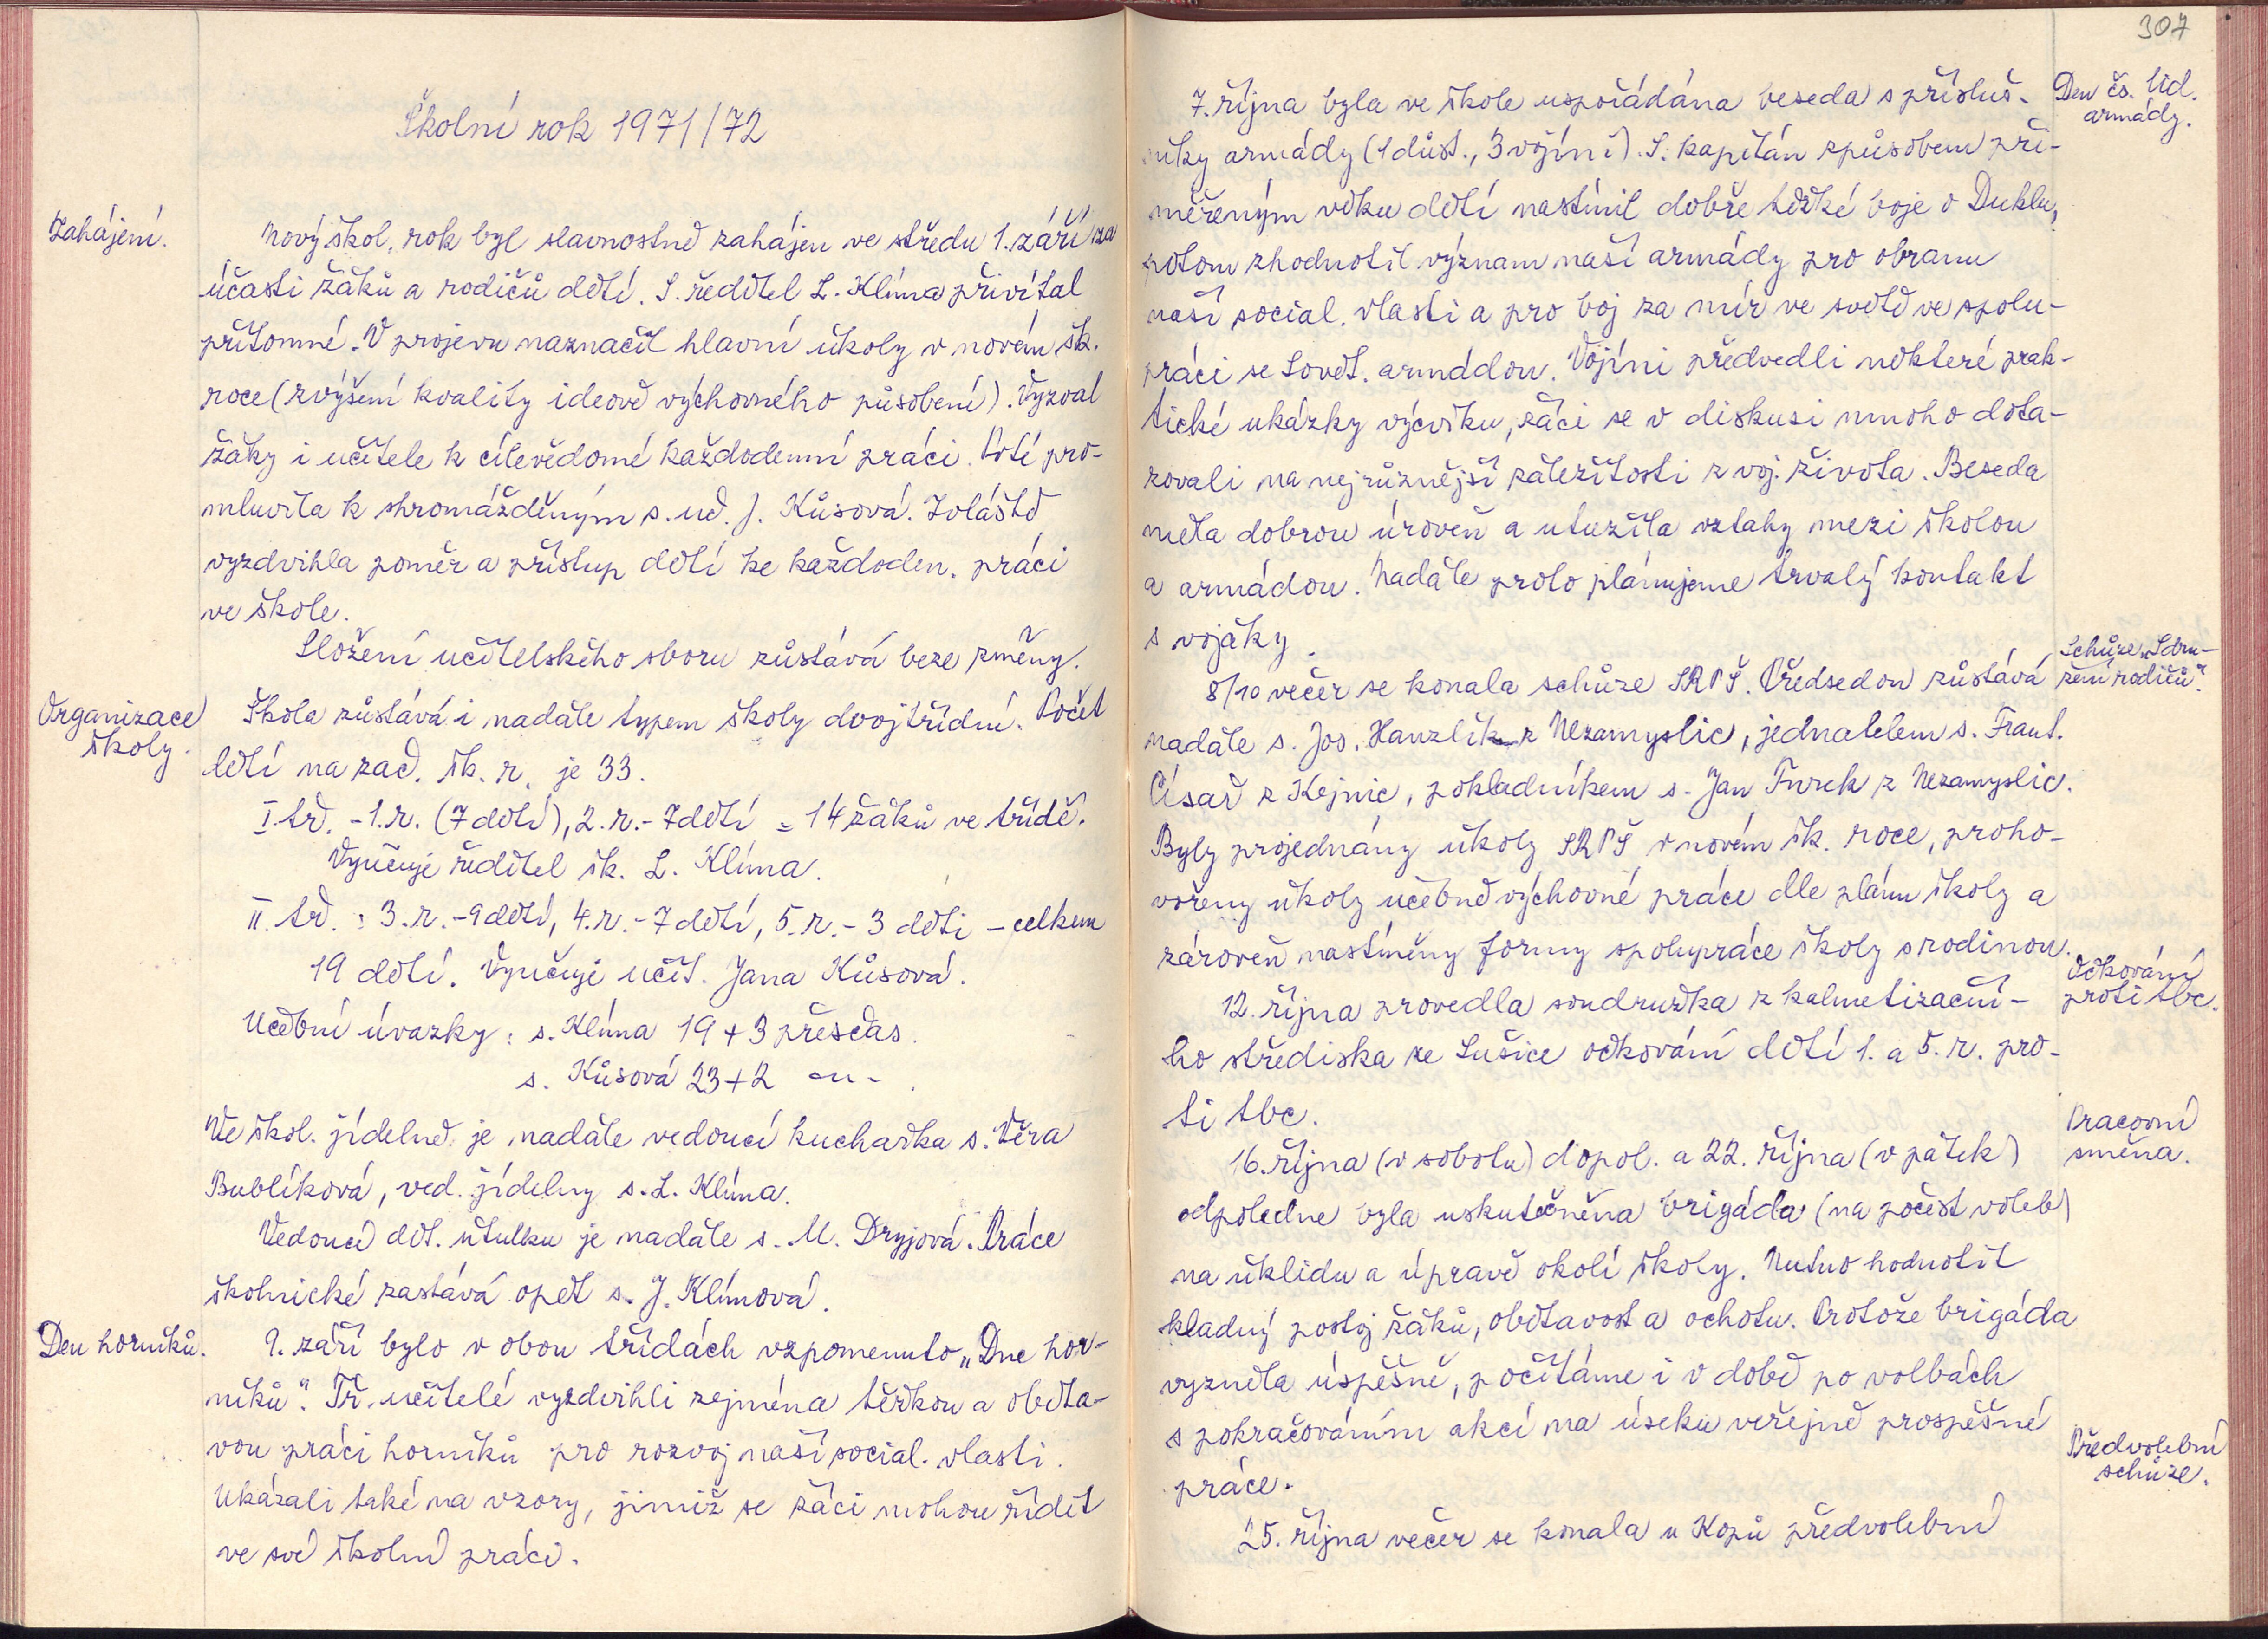 Školní rok 1971/72
Zahájení.
Nový škol. rok byl slavnostně zahájen ve středu 1. září za
účasti žáků a rodičů dětí. S. ředitel L. Klíma přivítal
přítomné. V projevu naznačil hlavní úkoly v novém šk.
roce (zvýšení kvality ideově výchovného působení). Vyzval
žáky i učitele k cílevědomé každodenní práci. Poté pro-
mluvila k shromážděným s. uč. J. Kůsová. Zvláště
vyzdvihla poměr a přístup dětí ke každoden. práci
ve škole.
Složení učitelského sboru zůstává beze změny.
Organizace
školy.
Škola zůstává i nadále typem školy dvojtřídní. Počet
dětí na zač. šk. r. je 33.
I. tř. - 1. r. (7 dětí), 2. r. - 7 dětí = 14 žáků ve třídě.
Vyučuje ředitel šk. L. Klíma.
II. tř. : 3. r. - 9 dětí, 4. r. - 7 dětí, 5. r. - 3 děti - celkem
19 dětí. Vyučuje učit. Jana Kůsová.
Učební úvazky: s. Klíma 19 + 3 přesčas.
s. Kůsová 23 + 2 -"- .
Ve škol. jídelně je nadále vedoucí kuchařka s. Věra
Bublíková, ved. jídelny s. L. Klíma.
Vedoucí dět. útulku je nadále s. M. Dryjová. Práce
školnické zastává opět s. J. Klímová.
Den horníků.
9. září bylo v obou třídách vzpomenuto „Dne hor-
níků". Tř. učitelé vyzdvihli zejména těžkou a oběta-
vou práci horníků pro rozvoj naší social. vlasti.
Ukázali také na vzory, jimiž se žáci mohou řídit
ve své školní práci.
307
Den čs. lid.
armády.
7. října byla ve škole uspořádána beseda s přísluš-
níky armády (1 důst., 3 vojíni). S. kapitán způsobem při-
měřeným věku dětí nastínil dobře těžké boje o Duklu,
potom zhodnotil význam naší armády pro obranu
naší social. vlasti a pro boj za mír ve světě ve spolu-
práci se Sovět. armádou. Vojíni předvedli některé prak-
tické ukázky výcviku, žáci se v diskusi mnoho dota-
zovali na nejrůznější záležitosti z voj. života. Beseda
měla dobrou úroveň a utužila vztahy mezi školou
a armádou. Nadále proto plánujeme trvalý kontakt
s vojáky.
Schůze „Sdru-
žení rodičů".
8/10 večer se konala schůze SRPŠ. Předsedou zůstává
nadále s. Jos. Hanzlík z Nezamyslic, jednatelem s. Frant.
Císař z Kejnic, pokladníkem s. Jan Turek z Nezamyslic.
Byly projednány úkoly SRPŠ v novém šk. roce, proho-
vořeny úkoly učebně výchovné práce dle plánu školy a
zároveň nastíněny formy spolupráce školy s rodinou.
Očkování
proti tbc.
12. října provedla soudružka z kalmetizační-
ho střediska ze Sušice očkování dětí 1. a 5. r. pro-
ti tbc.
Pracovní
směna.
16. října (v sobotu) dopol. a 22. října (v pátek)
odpoledne byla uskutečněna brigáda (na počest voleb)
na úklidu a úpravě okolí školy. Nutno hodnotit
kladný postoj žáků, obětavost a ochotu. Protože brigáda
vyzněla úspěšně, počítáme i v době po volbách
s pokračováním akcí na úseku veřejně prospěšné
práce.
Předvolební
schůze.
25. října večer se konala u Kopů předvolební